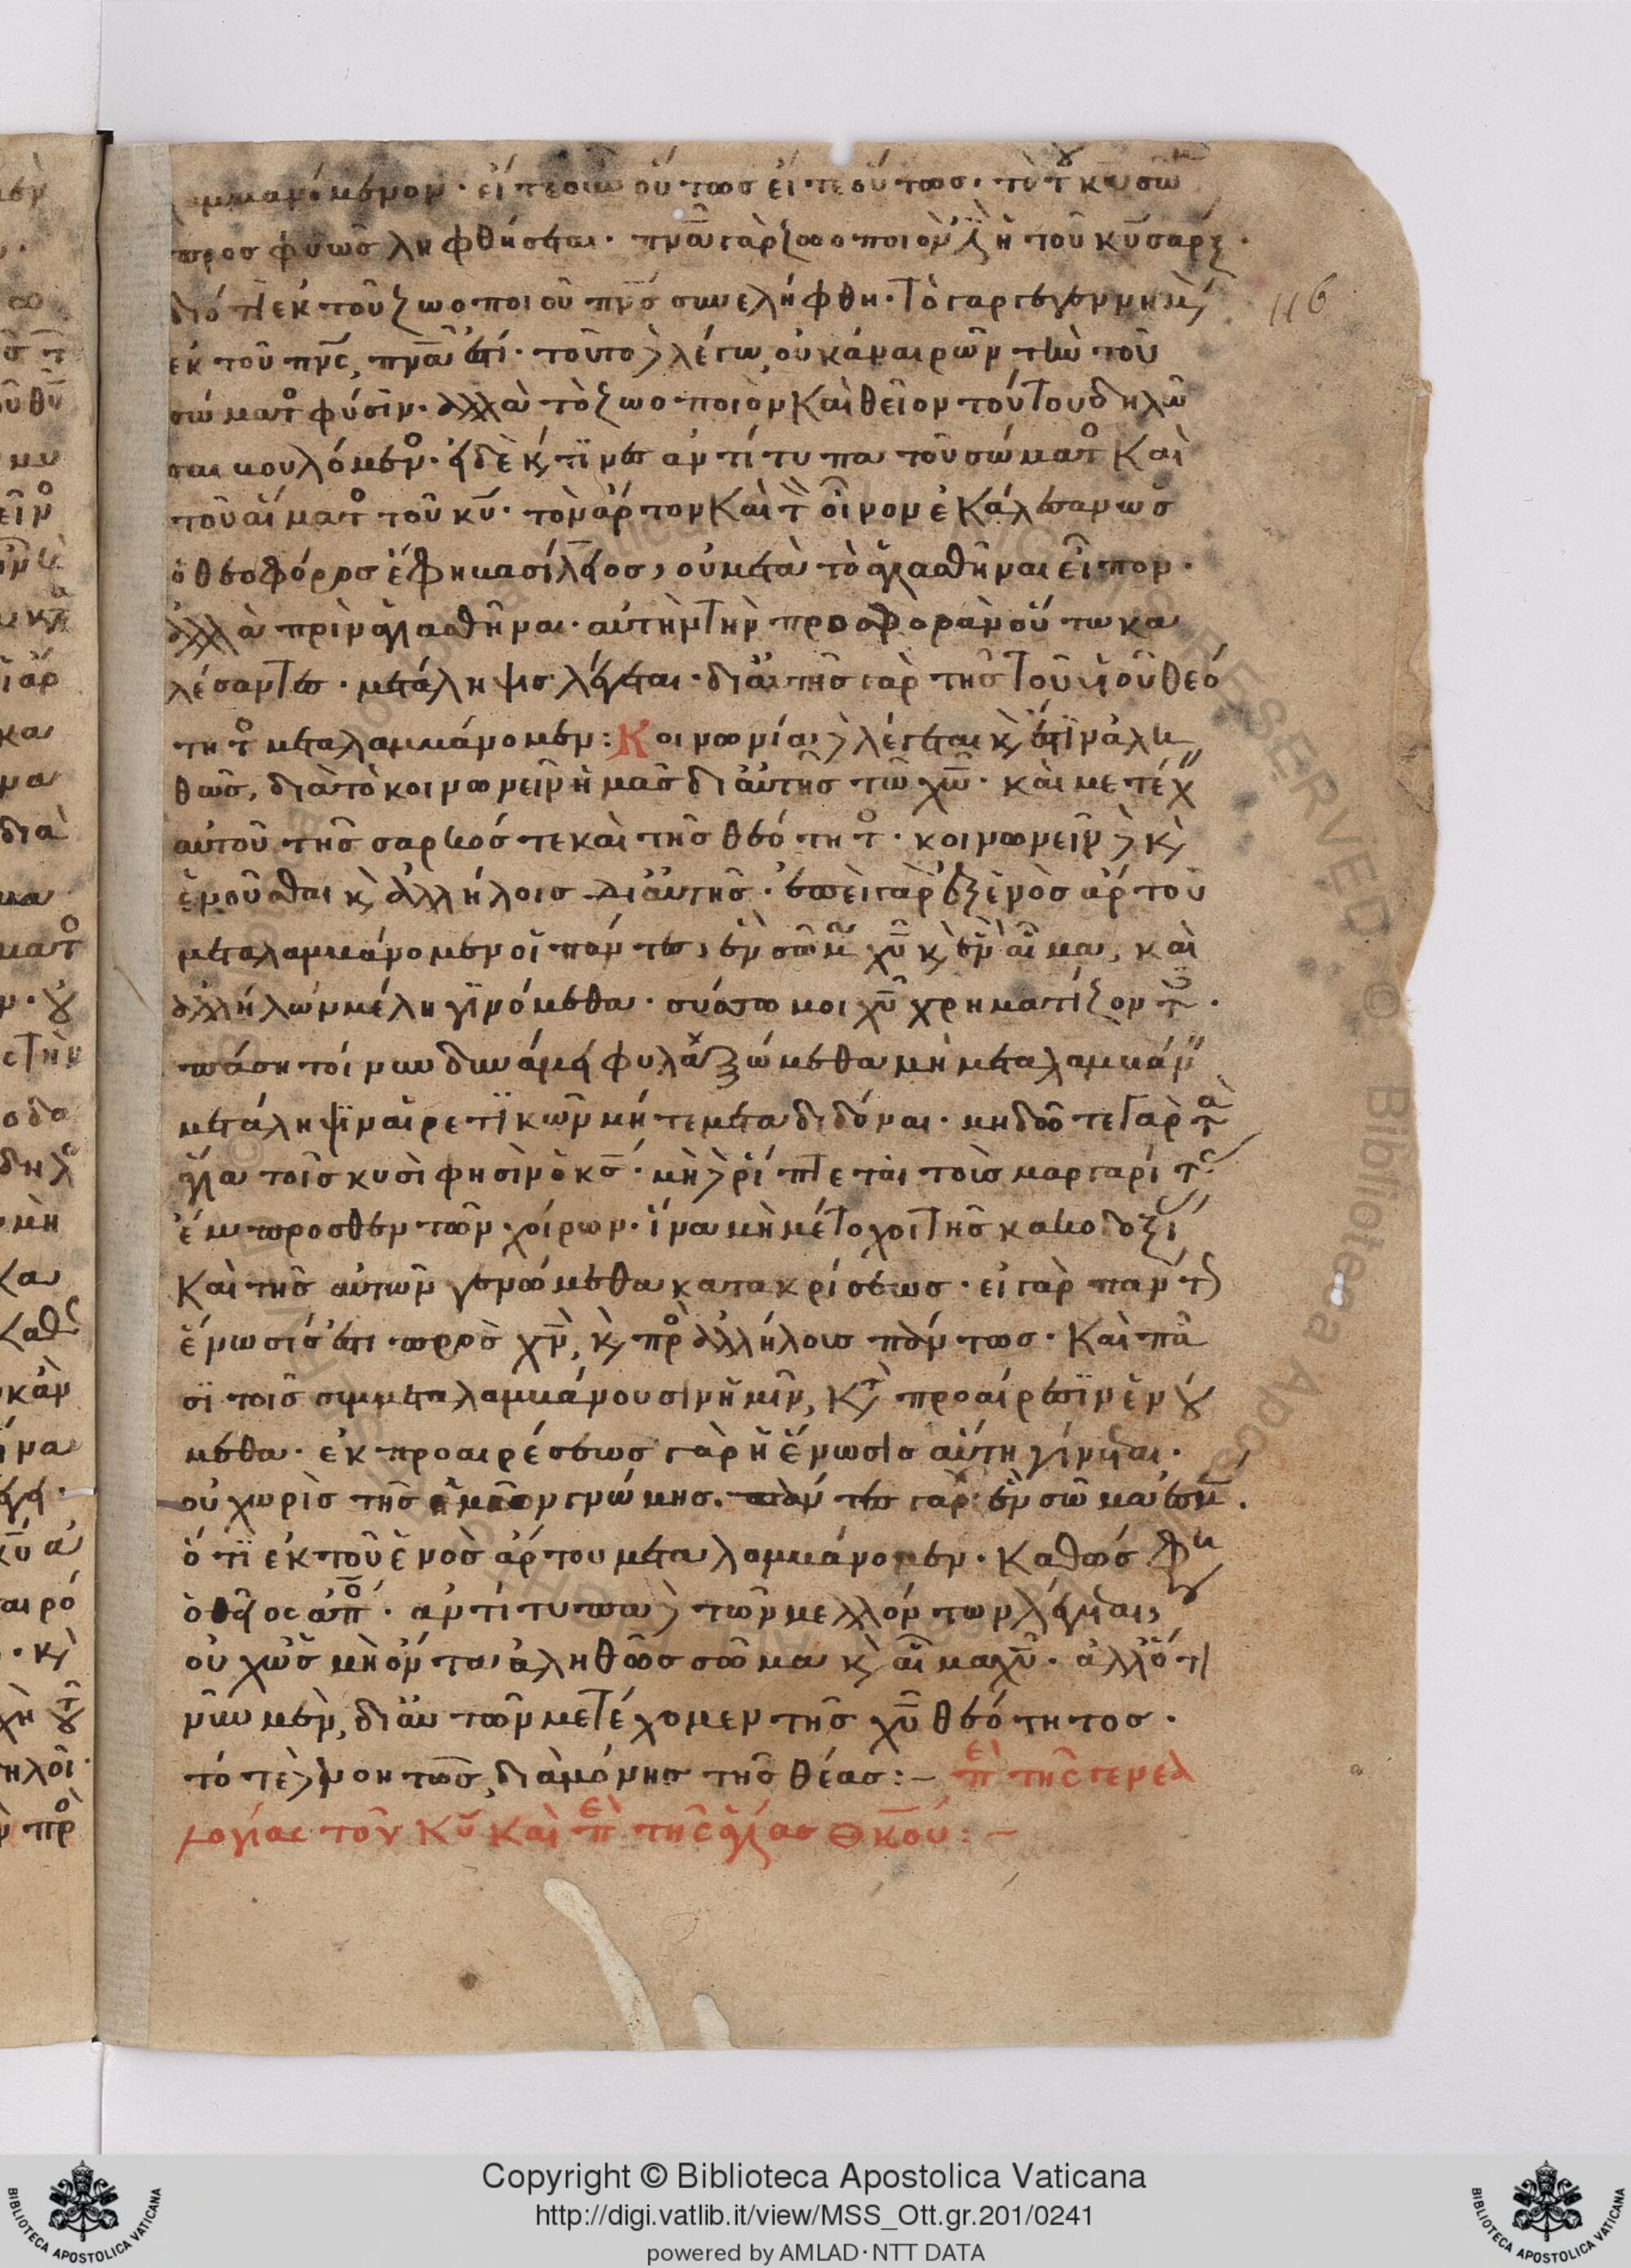 λαμβανόμενον· εἴτε οὖν οὕτως εἴτε οὕτως· τὸ τοῦ κυ σῶμα
προσφυῶς ληφθήσεται· πνα γὰρ ζωοποιὸν ἡ τοῦ κυ σάρξ·
διότι ἐκ τοῦ ζωοποιοῦ πνς συνελήφθη· τὸ γὰρ γεγεννημένον
ἐκ τοῦ πνς, πνα ἐστί· τοῦτο δὲ λέγω, οὐκ ἀναιρῶν τὴν τοῦ
σώματος φύσιν· ἀλλὰ τὸ ζωοποιὸν καὶ θεῖον τούτου δηλῶ
σαι βουλόμενος· εἰ δὲ καί τινες ἀντίτυπα τοῦ σώματος καὶ
τοῦ αἵματος τοῦ κυ· τὸν ἄρτον καὶ τὸν οἶνον ἐκάλεσαν ὡς
ὁ θεοφόρος ἔφη βασίλειος, οὐ μετὰ τὸ ἁγιασθῆναι εἶπον·
ἀλλὰ πρὶν ἁγιασθῆναι· αὐτὴν τὴν προσφορὰν οὕτω κα
λέσαντες· μετάληψις λέγεται· δι αὐτῆς γὰρ τῆς τοῦ ιυ θεό
τητος μεταλαμβάνομεν: Κοινωνία δὲ λέγεται καὶ ἔστιν ἀλη
θῶς, διὰ τὸ κοινωνεῖν ἡμᾶς δι αὐτῆς τῶ χω· καὶ μετέχειν
αὐτοῦ τῆς σαρκός τε καὶ τῆς θεότητος· κοινωνεῖν δὲ καὶ
ἑνοῦσθαι καὶ ἀλλήλοις δι αὐτῆς· ἐπεὶ γὰρ ἐξ ἑνὸς ἄρτου
μεταλαμβάνομεν οἱ πάντες, ἓν σῶμα χυ καὶ ἓν αἷμα, καὶ
ἀλλήλων μέλη γινόμεθα· σύσσωμοι χυ χρηματίζοντες·
πάση τοίνυν δυνάμει φυλάξώμεθα μὴ μεταλαμβάνειν
μετάληψιν αἱρετικῶν μήτε μεταδιδόναι· μὴ δότε γὰρ τὰ
ἅγια τοῖς κυσὶ φησὶν ὁ κς· μὴ δὲ ῥίπτεται τοὺς μαργαρίτας
ἔμπροσθεν τῶν χοίρων· ἵνα μὴ μέτοχοι τῆς κακοδοξίας
καὶ τῆς αὐτῶν γενώμεθα κατακρίσεως· εἰ γὰρ πάντως
ἕνωσίς ἐστι πρὸς χν, καὶ πρὸς ἀλλήλοις πάντως· καὶ πᾶ
σι τοῖς συμμεταλαμβάνουσιν ἡμῖν, κατὰ προαίρεσιν ἑνού
μεθα· ἐκ προαιρέσεως γὰρ ἡ ἕνωσις αὕτη γίνεται·
οὐ χωρὶς τῆς ἡμῶν γνώμης· πάντες γὰρ ἓν σῶμα ἐσμέν·
ὅτι ἐκ τοῦ ἑνὸς ἄρτου μεταλαμβάνομεν· καθώς φη
ὁ θεῖος ἀπ· ἀντίτυπα δὲ τῶν μελλόντων λέγεται,
οὐχ ὡς μὴ ὄντα ἀληθῶς σῶμα καὶ αἷμα χυ· ἀλλ ὅτι
νῦν μὲν, δι αὐτῶν μετέχομεν τῆς χυ θεότητος·
τότε δὲ νοητῶς, διὰ μόνης τῆς θέας:– Περὶ τῆς γενεα
λογίας τοῦ Κυ καὶ περὶ τῆς ἁγίας Θκου:–
116
Copyright © Biblioteca Apostolica Vaticana
http://digi.vatlib.it/view/MSS_Ott.gr.201/0241
powered by AMLAD·NTT DATA
BIBLIOTECA APOSTOLICA VATICANA
BIBLIOTECA APOSTOLICA VATICANA